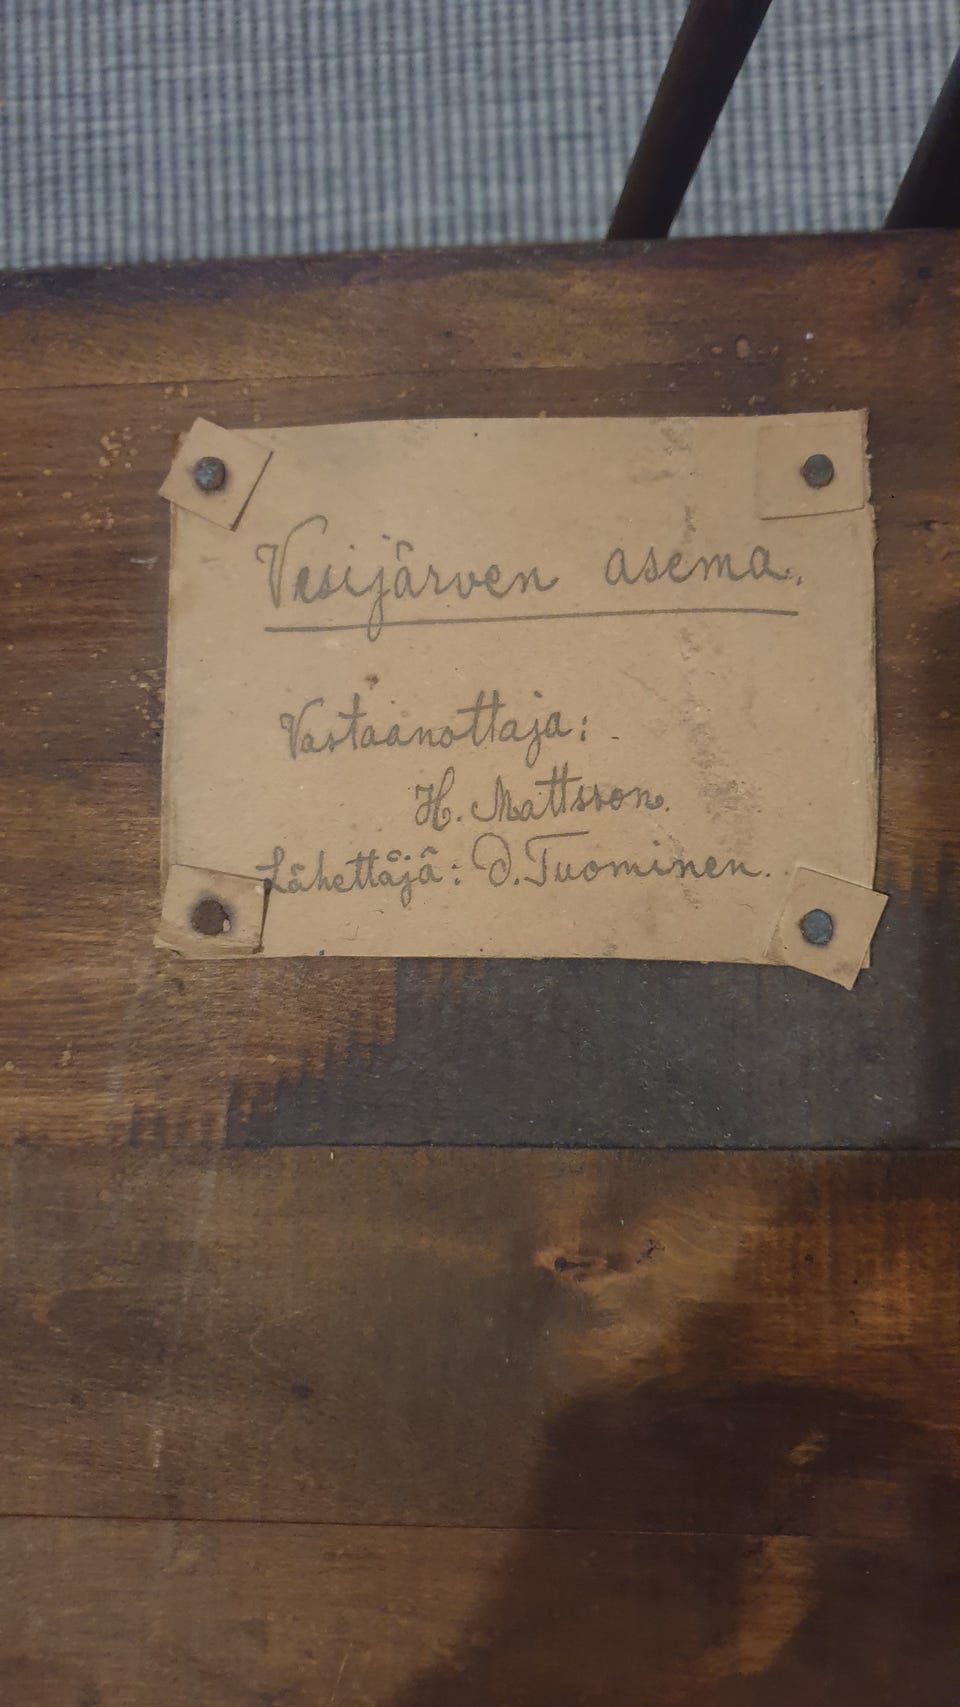 Vesijärven asema.
Vastaanottaja:
H. Mattsson.
Lähettäjä: O. Tuominen.